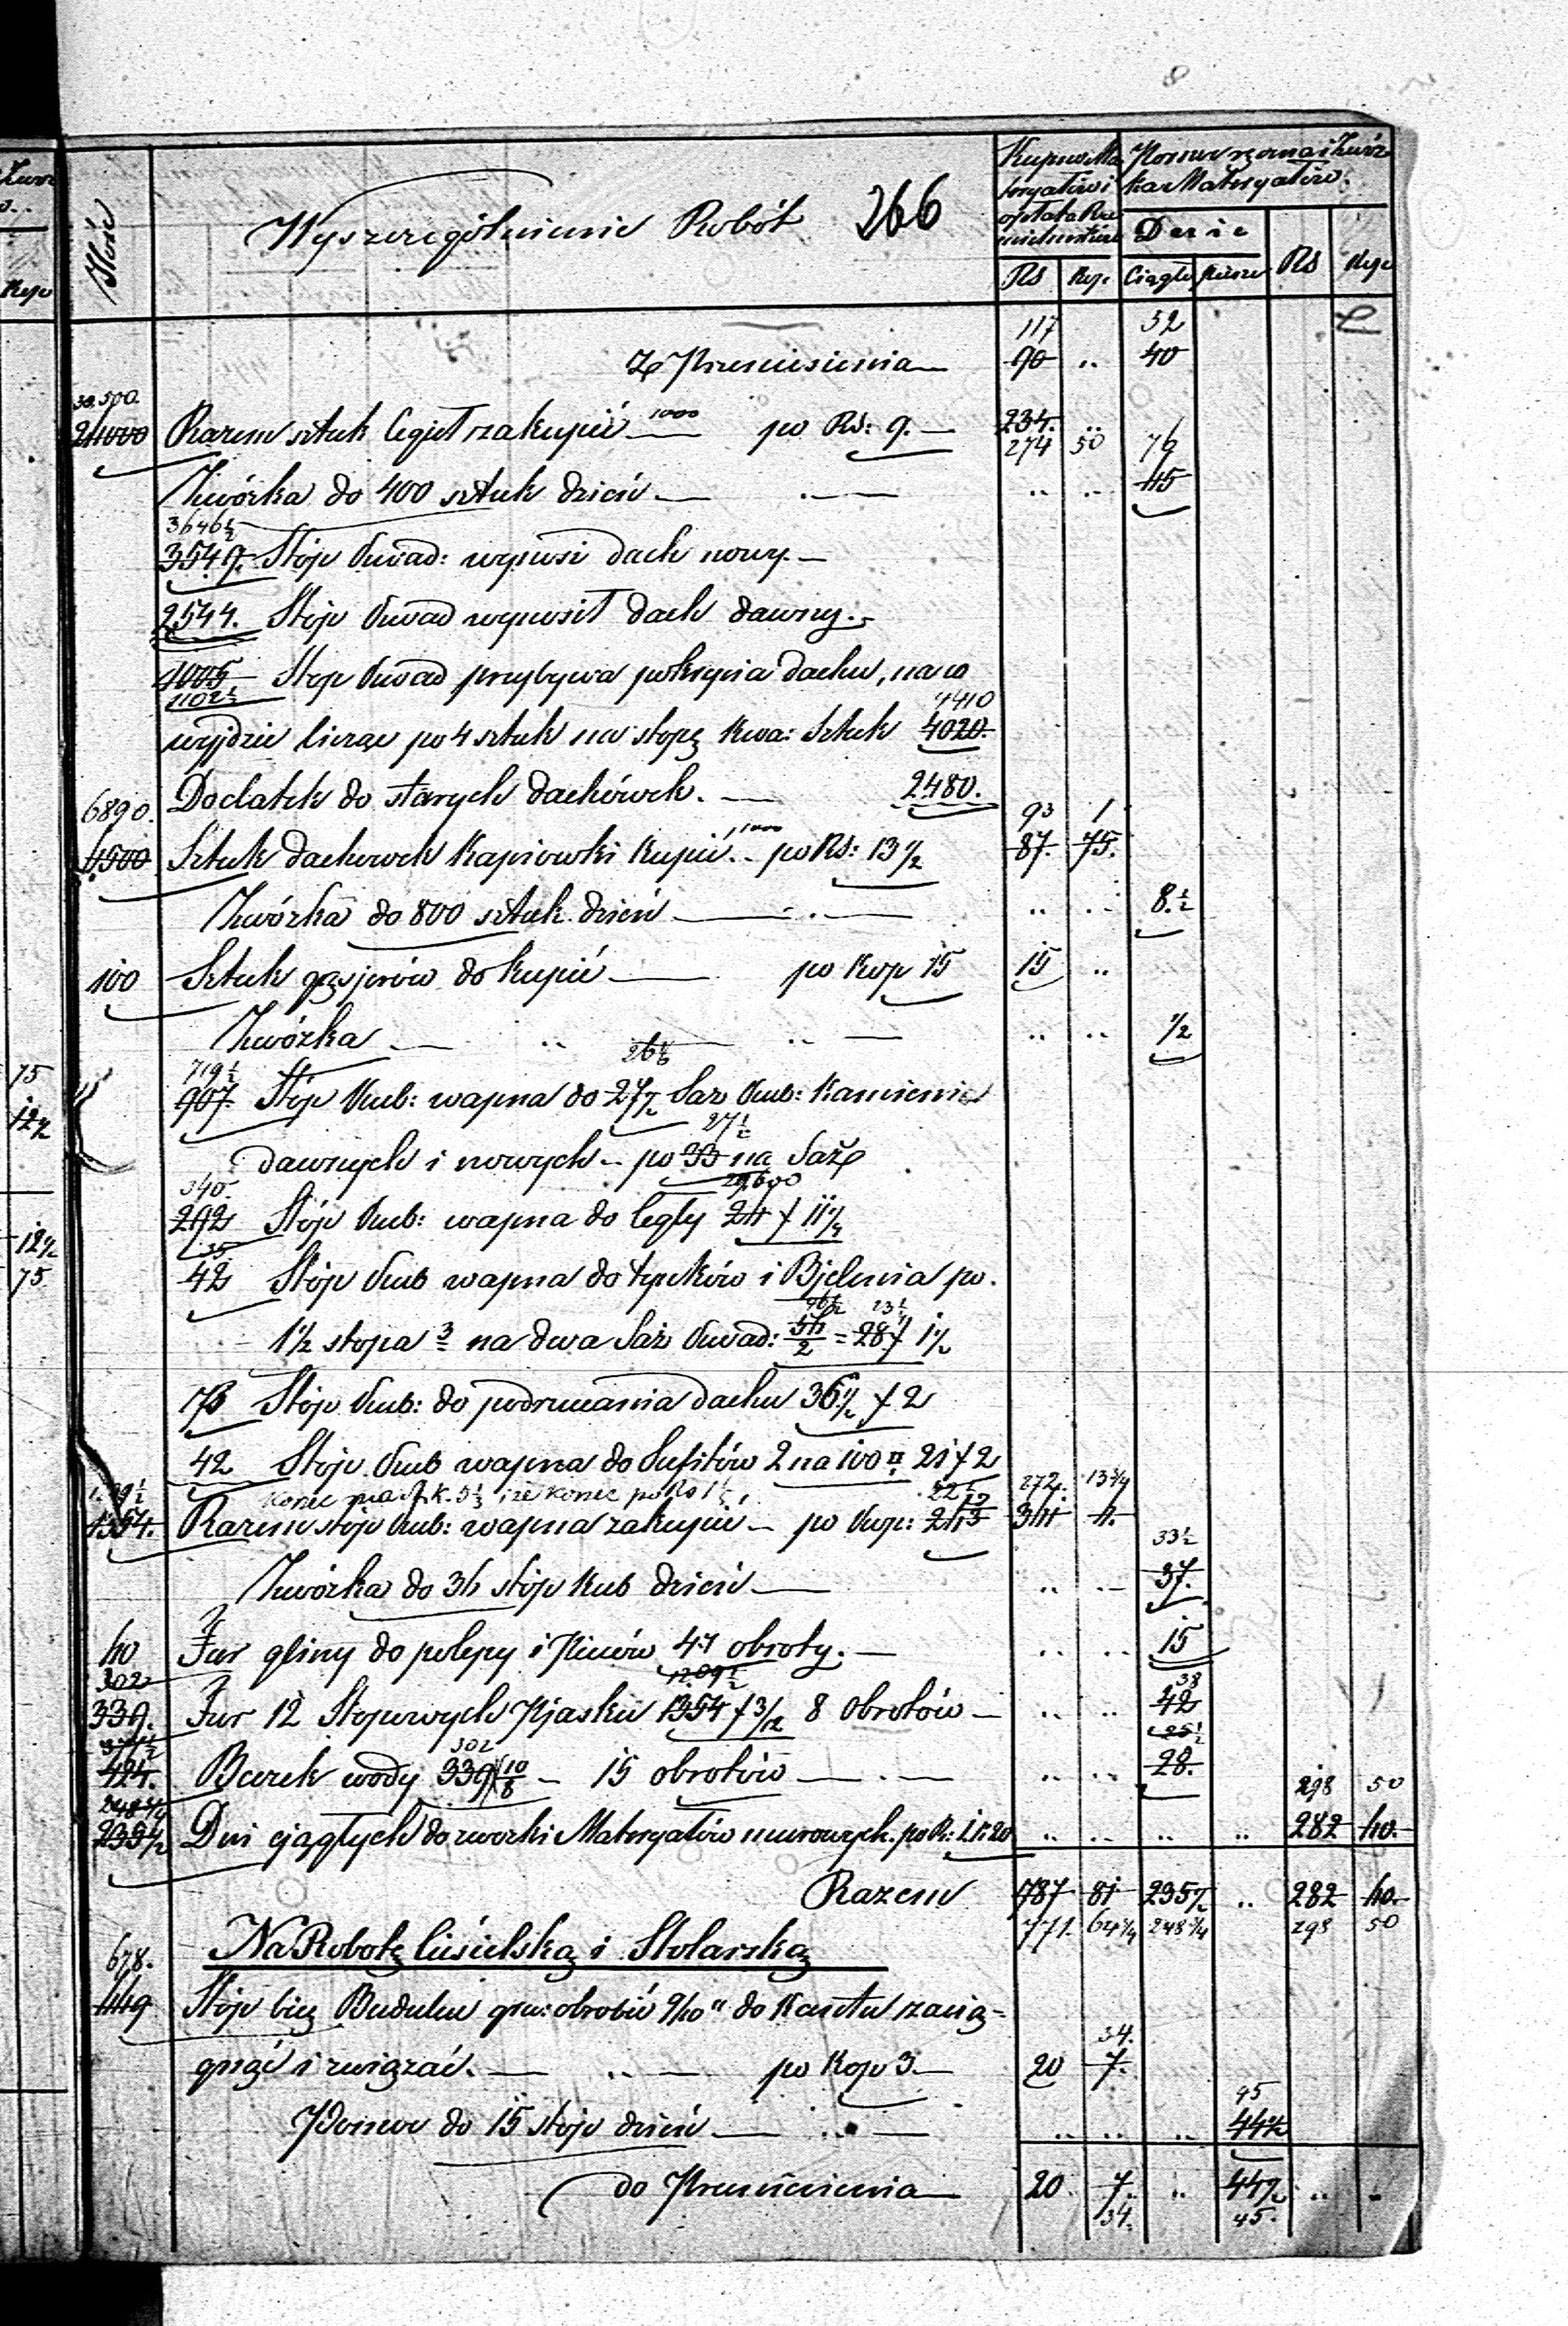 Ilość
Wyszczególnienie Robót 266
Kupno Materyałów i opłata Rzemieślników
Pomoc ręczna i Zwózka Materyałów
Dnie
Rs Kop. Ciągłe Piesze Rs Kop
117 52
Z Przeniesienia 90 .. 40
30.500.
26000 Razem sztuk Cegieł zakupić 1000 po Rs: 9. 234. ..
274 50 76
Zwózka do 400 sztuk dzień .. .. 45
3646½
3549. Stóp kwad: wynosi dach nowy.
2544. Stóp kwad wynosił dach dawny.
1005 Stóp kwad przybywa pokrycia dachu, na co
1102½ 4410
wyjdzie licząc po 4 sztuk na stopę kwa: Sztuk 4020.
Dodatek do starych dachówek. 2480.
6890. 93 1
6500 Sztuk dachówek Karpiowki kupić 1000 po Rs: 13½ 87. 75.
Zwózka do 800 sztuk dzień .. .. 8.½
100 Sztuk gąsjorów do kupić po Kop 15 15 ..
Zwózka .. .. .. .. ½
719½ 26⅙
907. Stóp kub: wapna do 27½ Saż kub: Kamienie
27½
dawnych i nowych po 33 na Saże
340. 29,600
292 Stóp kub: wapna do Cegły 26 f 11¼
35.
42 Stóp kub wapna do tynków i Bjelenia po.
23½
1½ stopa 3 na dwa Saż kwad: 56/2 = 28 f 1½
73 Stóp kub: do podrzucania dachu 36½ f 2
42 Stóp kub wapna do Sufitów 2 na 100 □ 21 f 2
1209½ 22½ 272. 13¾
1354. Razem stóp kub: wapna zakupić po kop: 311 4.
33½
Zwózka do 36 stóp kub dzień .. .. 37.
60 Fur gliny do polepy i Pieców 4 f obroty. .. .. 15
302 1209½ 38
339. Fur 12 Stopowych Pjasku 1354 f 3/12 8 obrotów .. .. 42
377½ 302 25½
424. Beczek wody 339 f 10/8 15 obrotów .. .. 28.
248¾ 298 50
235½ Dni ciągłych do zwózki Materyałów murowych. po R: 1 k 20 .. .. .. .. 282 60.
Razem 787 81 235½ .. 282 60.
771. 64¼ 248¾ 298 50
678. Na Robotę Ciesielską i Stolarską
669 Stóp bież Budulcu gru: obrobić 9/10" do Kantu zaciągnąć
34.
gnąć i związać. po Kop 3 20 7.
45
Pomoc do 15 stóp dzień .. .. .. 44½
do Przeniesienia 20 7. .. 44½ .. ..
34. 45.